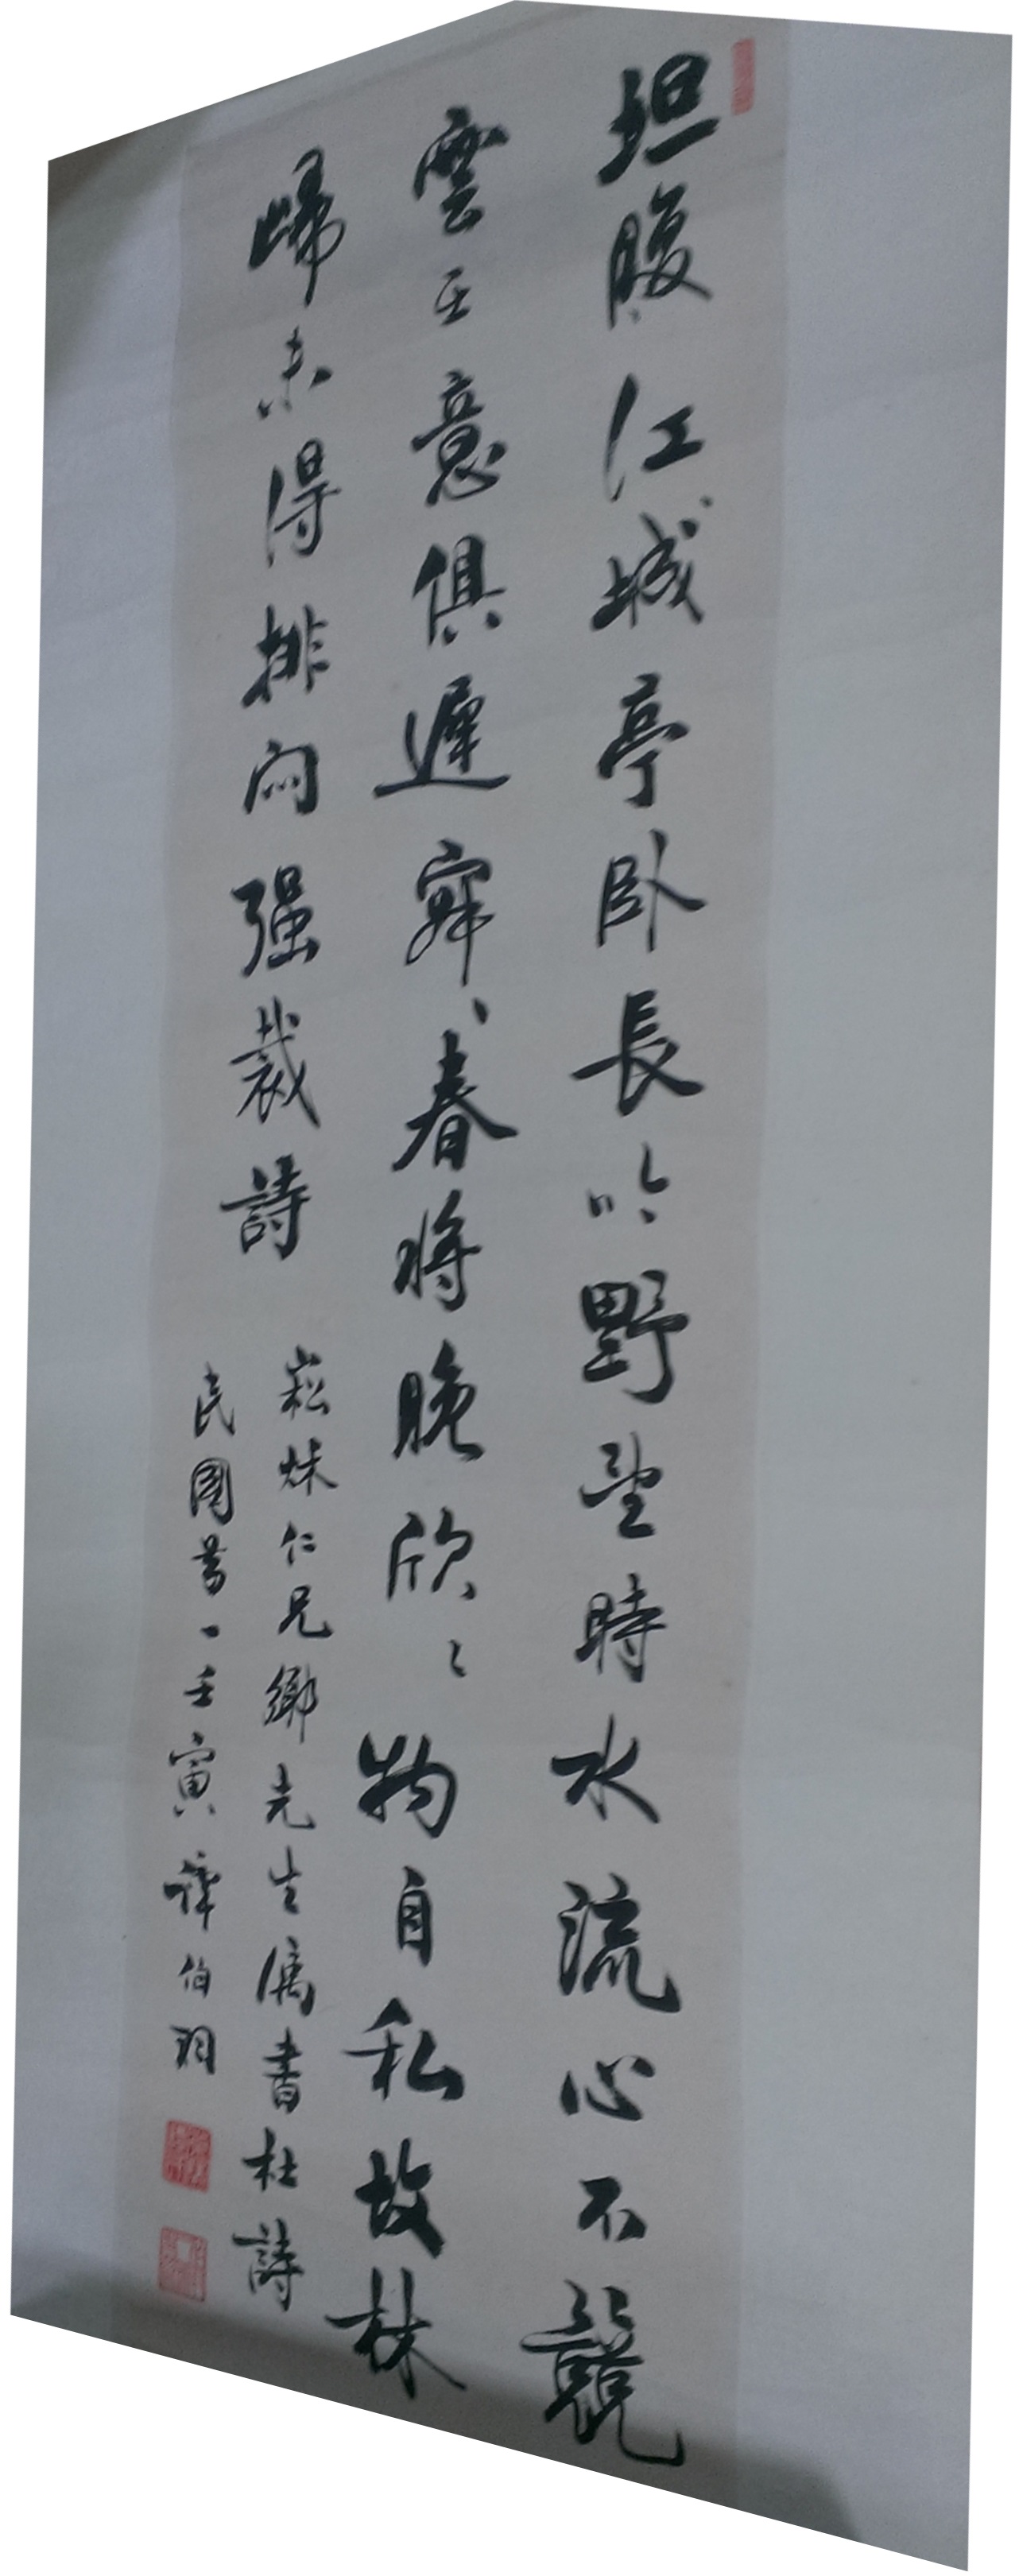 坦腹江城亭卧長吟野望時水流心不競
雲在意俱遲寂寂春將晚欣欣物自私故林
歸未得排悶强裁詩
崧妹仁兄鄉先生屬書杜詩
民國五一壬寅譚伯羽